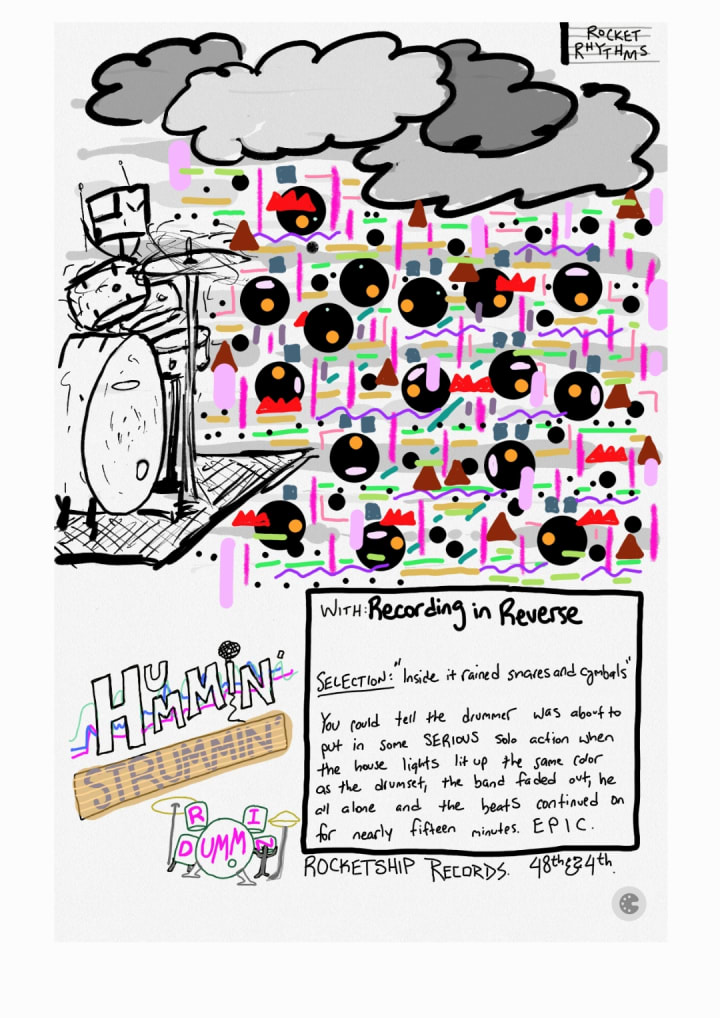 ROCKET
RHYTHMS
WITH: Recording in Reverse
SELECTION: "Inside it rained snares and cymbals"
You could tell the drummer was about to
put in some SERIOUS solo action when
the house lights lit up the same color
as the drumset, the band faded out, he
all alone and the beats continued on
for nearly fifteen minutes. EPIC.
HUMMIN'
STRUMMIN'
DRUMMIN
ROCKETSHIP RECORDS. 48th & 4th.